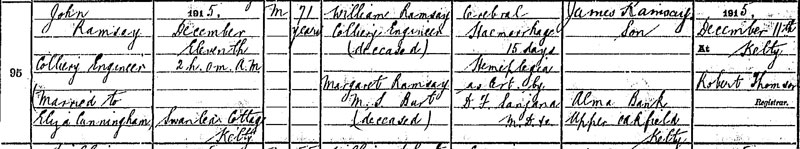 95
John
Ramsay
Colliery Engineer
Married to
Eliza Cunningham
1915.
December
Eleventh
2h. 0m. A.M
Swanlea Cottage
Kelty
M
71
years
William Ramsay
Colliery Engineer
(deceased)
Margaret Ramsay
M.S. Burt
(deceased)
Cerebral
Haemorrhage
15 days
Hemiplegia
as Cert. by
D. F.
M.D. &c
James Ramsay
Son
Alma Bank
Upper Oakfield
Kelty
1915.
December 11th
At Kelty
Robert Thomson
Registrar.